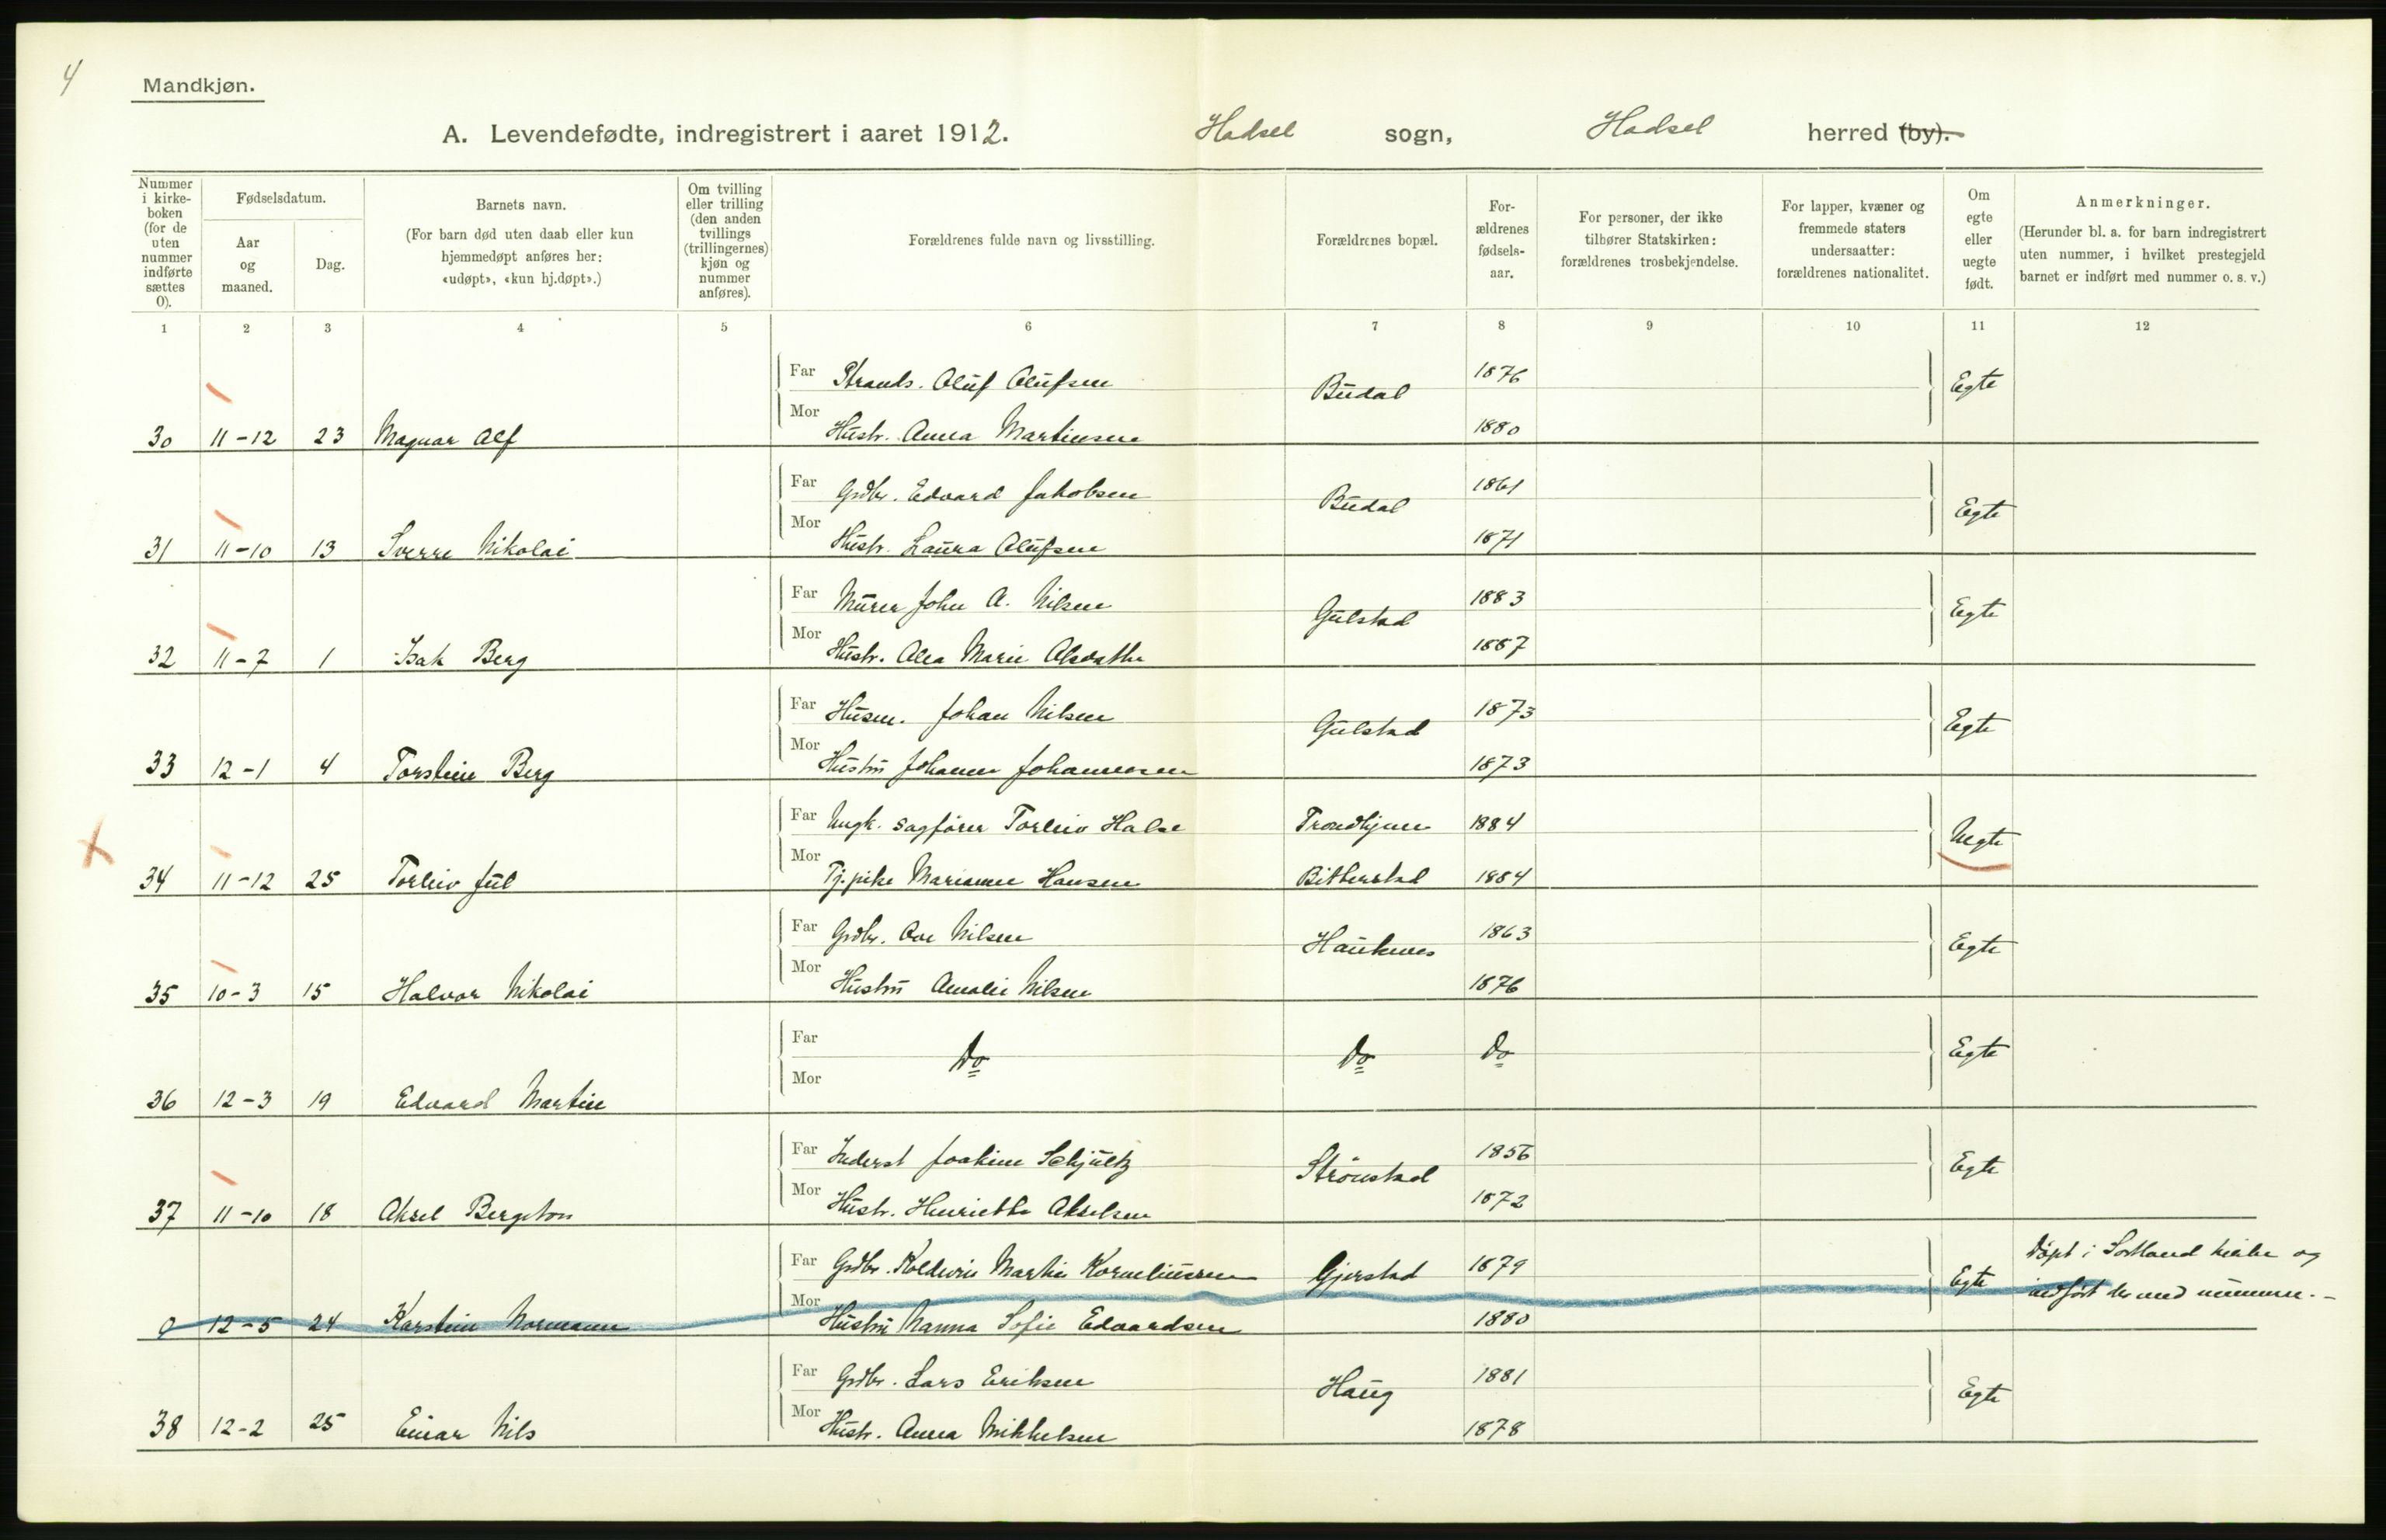 4
Mandkjøn.
A. Levendefødte, indregistrert i aaret 1912. Hadsel sogn, Hadsel herred (by).
Nummer i kirkeboken (for de uten nummer indførte sættes 0).
Fødselsdatum.
Aar og maaned.
Dag.
Barnets navn.
(For barn død uten daab eller kun hjemmedøpt anføres her: «udøpt», «kun hj.døpt».)
Om tvilling eller trilling (den anden tvillings (trillingernes) kjøn og nummer anføres).
Forældrenes fulde navn og livsstilling.
Forældrenes bopæl.
Forældrenes fødselsaar.
For personer, der ikke tilhører Statskirken: forældrenes trosbekjendelse.
For lapper, kvæner og fremmede staters undersaatter: forældrenes nationalitet.
Om egte eller uegte født.
Anmerkninger.
(Herunder bl. a. for barn indregistrert uten nummer, i hvilket prestegjeld barnet er indført med nummer o. s. v.)
1 2 3 4 5 6 7 8 9 10 11 12
Far Strands. Oluf Olufsen Budal 1876 Egte
30 11-12 23 Magnar Alf Mor Hustr. Anna Martinsen 1880
Far Grdbr. Edvard Jakobsen Budal 1861 Egte
31 11-10 13 Sverre Nikolai Mor Hustr. Laura Olufsen 1871
Far Murer John A. Nilsen Gulstad 1883 Egte
32 11-7 1 Isak Berg Mor Hustr. Alea Marie 1887
Far Husm. Johan Nilsen Gulstad 1873 Egte
33 12-1 4 Torstein Berg Mor Hustru Johanna Johannesen 1873
Far Ungk. sagfører Torleiv Halse Trondhjem 1884 Uegte
34 11-12 25 Torleiv Jul Mor Tj.pike Marianne Hansen Bitterstad 1884
Far Grdbr. Ove Nilsen Hauknes 1863 Egte
35 10-3 15 Halvor Nikolai Mor Hustru Amalie Nilsen 1876
Far Do Do Do Egte
36 12-3 19 Edvard Martin Mor
Far Inderst Joakim Schjultz Strönstad 1856 Egte
37 11-10 18 Aksel Bergeton Mor Hustr. Henriette Akselsen 1872
Far Grdbr. Koldevin Martin Korneliussen Gjerstad 1879 Egte Döpt i Sortland kirke og
0 12-5 24 Karstein Normann Mor Hustru Nanna Sofie Edvardsen 1880 indført der med nummer.-
Far Grdbr. Lars Eriksen Haug 1881 Egte
38 12-2 25 Einar Nils Mor Hustr. Anna Mikkelsen 1878